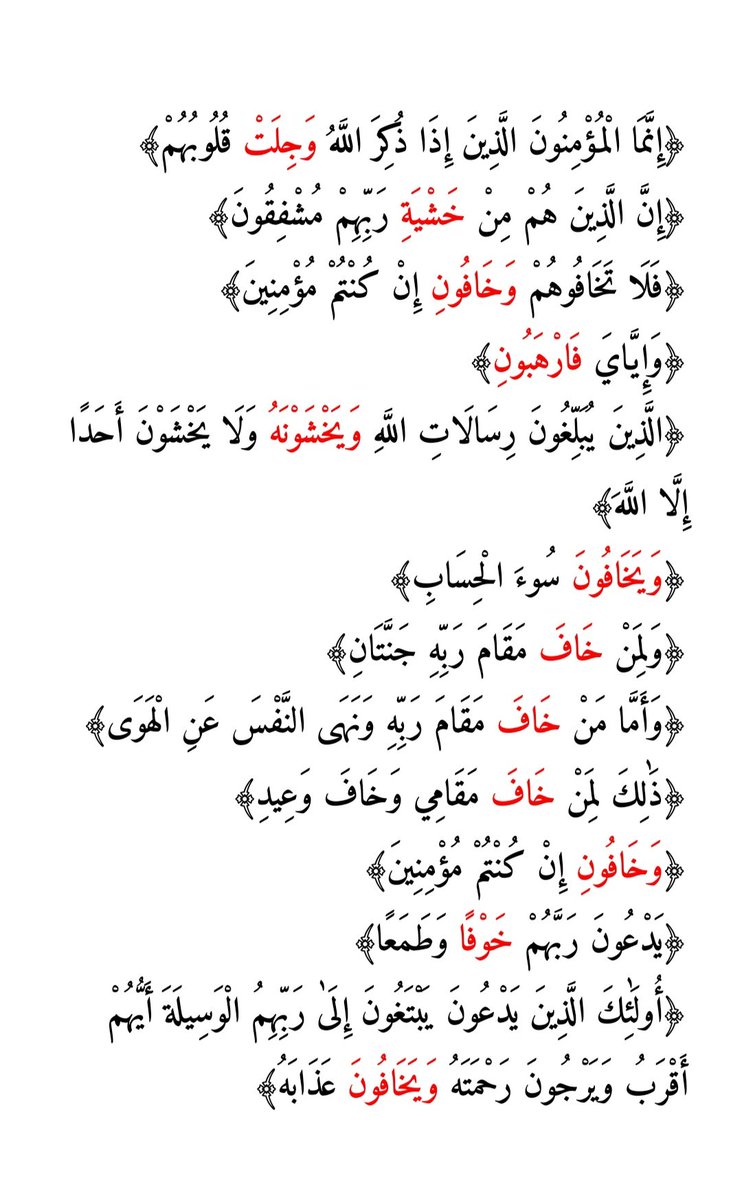 ﴿إِنَّمَا الْمُؤْمِنُونَ الَّذِينَ إِذَا ذُكِرَ اللَّهُ وَجِلَتْ قُلُوبُهُمْ﴾
﴿إِنَّ الَّذِينَ هُمْ مِنْ خَشْيَةِ رَبِّهِمْ مُشْفِقُونَ﴾
﴿فَلَا تَخَافُوهُمْ وَخَافُونِ إِنْ كُنْتُمْ مُؤْمِنِينَ﴾
﴿وَإِيَّايَ فَارْهَبُونِ﴾
﴿الَّذِينَ يُبَلِّغُونَ رِسَالَاتِ اللَّهِ وَيَخْشَوْنَهُ وَلَا يَخْشَوْنَ أَحَدًا
إِلَّا اللَّهَ﴾
﴿وَيَخَافُونَ سُوءَ الْحِسَابِ﴾
﴿وَلِمَنْ خَافَ مَقَامَ رَبِّهِ جَنَّتَانِ﴾
﴿وَأَمَّا مَنْ خَافَ مَقَامَ رَبِّهِ وَنَهَى النَّفْسَ عَنِ الْهَوَى﴾
﴿ذَٰلِكَ لِمَنْ خَافَ مَقَامِي وَخَافَ وَعِيدِ﴾
﴿وَخَافُونِ إِنْ كُنْتُمْ مُؤْمِنِينَ﴾
﴿يَدْعُونَ رَبَّهُمْ خَوْفًا وَطَمَعًا﴾
﴿أُولَٰئِكَ الَّذِينَ يَدْعُونَ يَبْتَغُونَ إِلَىٰ رَبِّهِمُ الْوَسِيلَةَ أَيُّهُمْ
أَقْرَبُ وَيَرْجُونَ رَحْمَتَهُ وَيَخَافُونَ عَذَابَهُ﴾